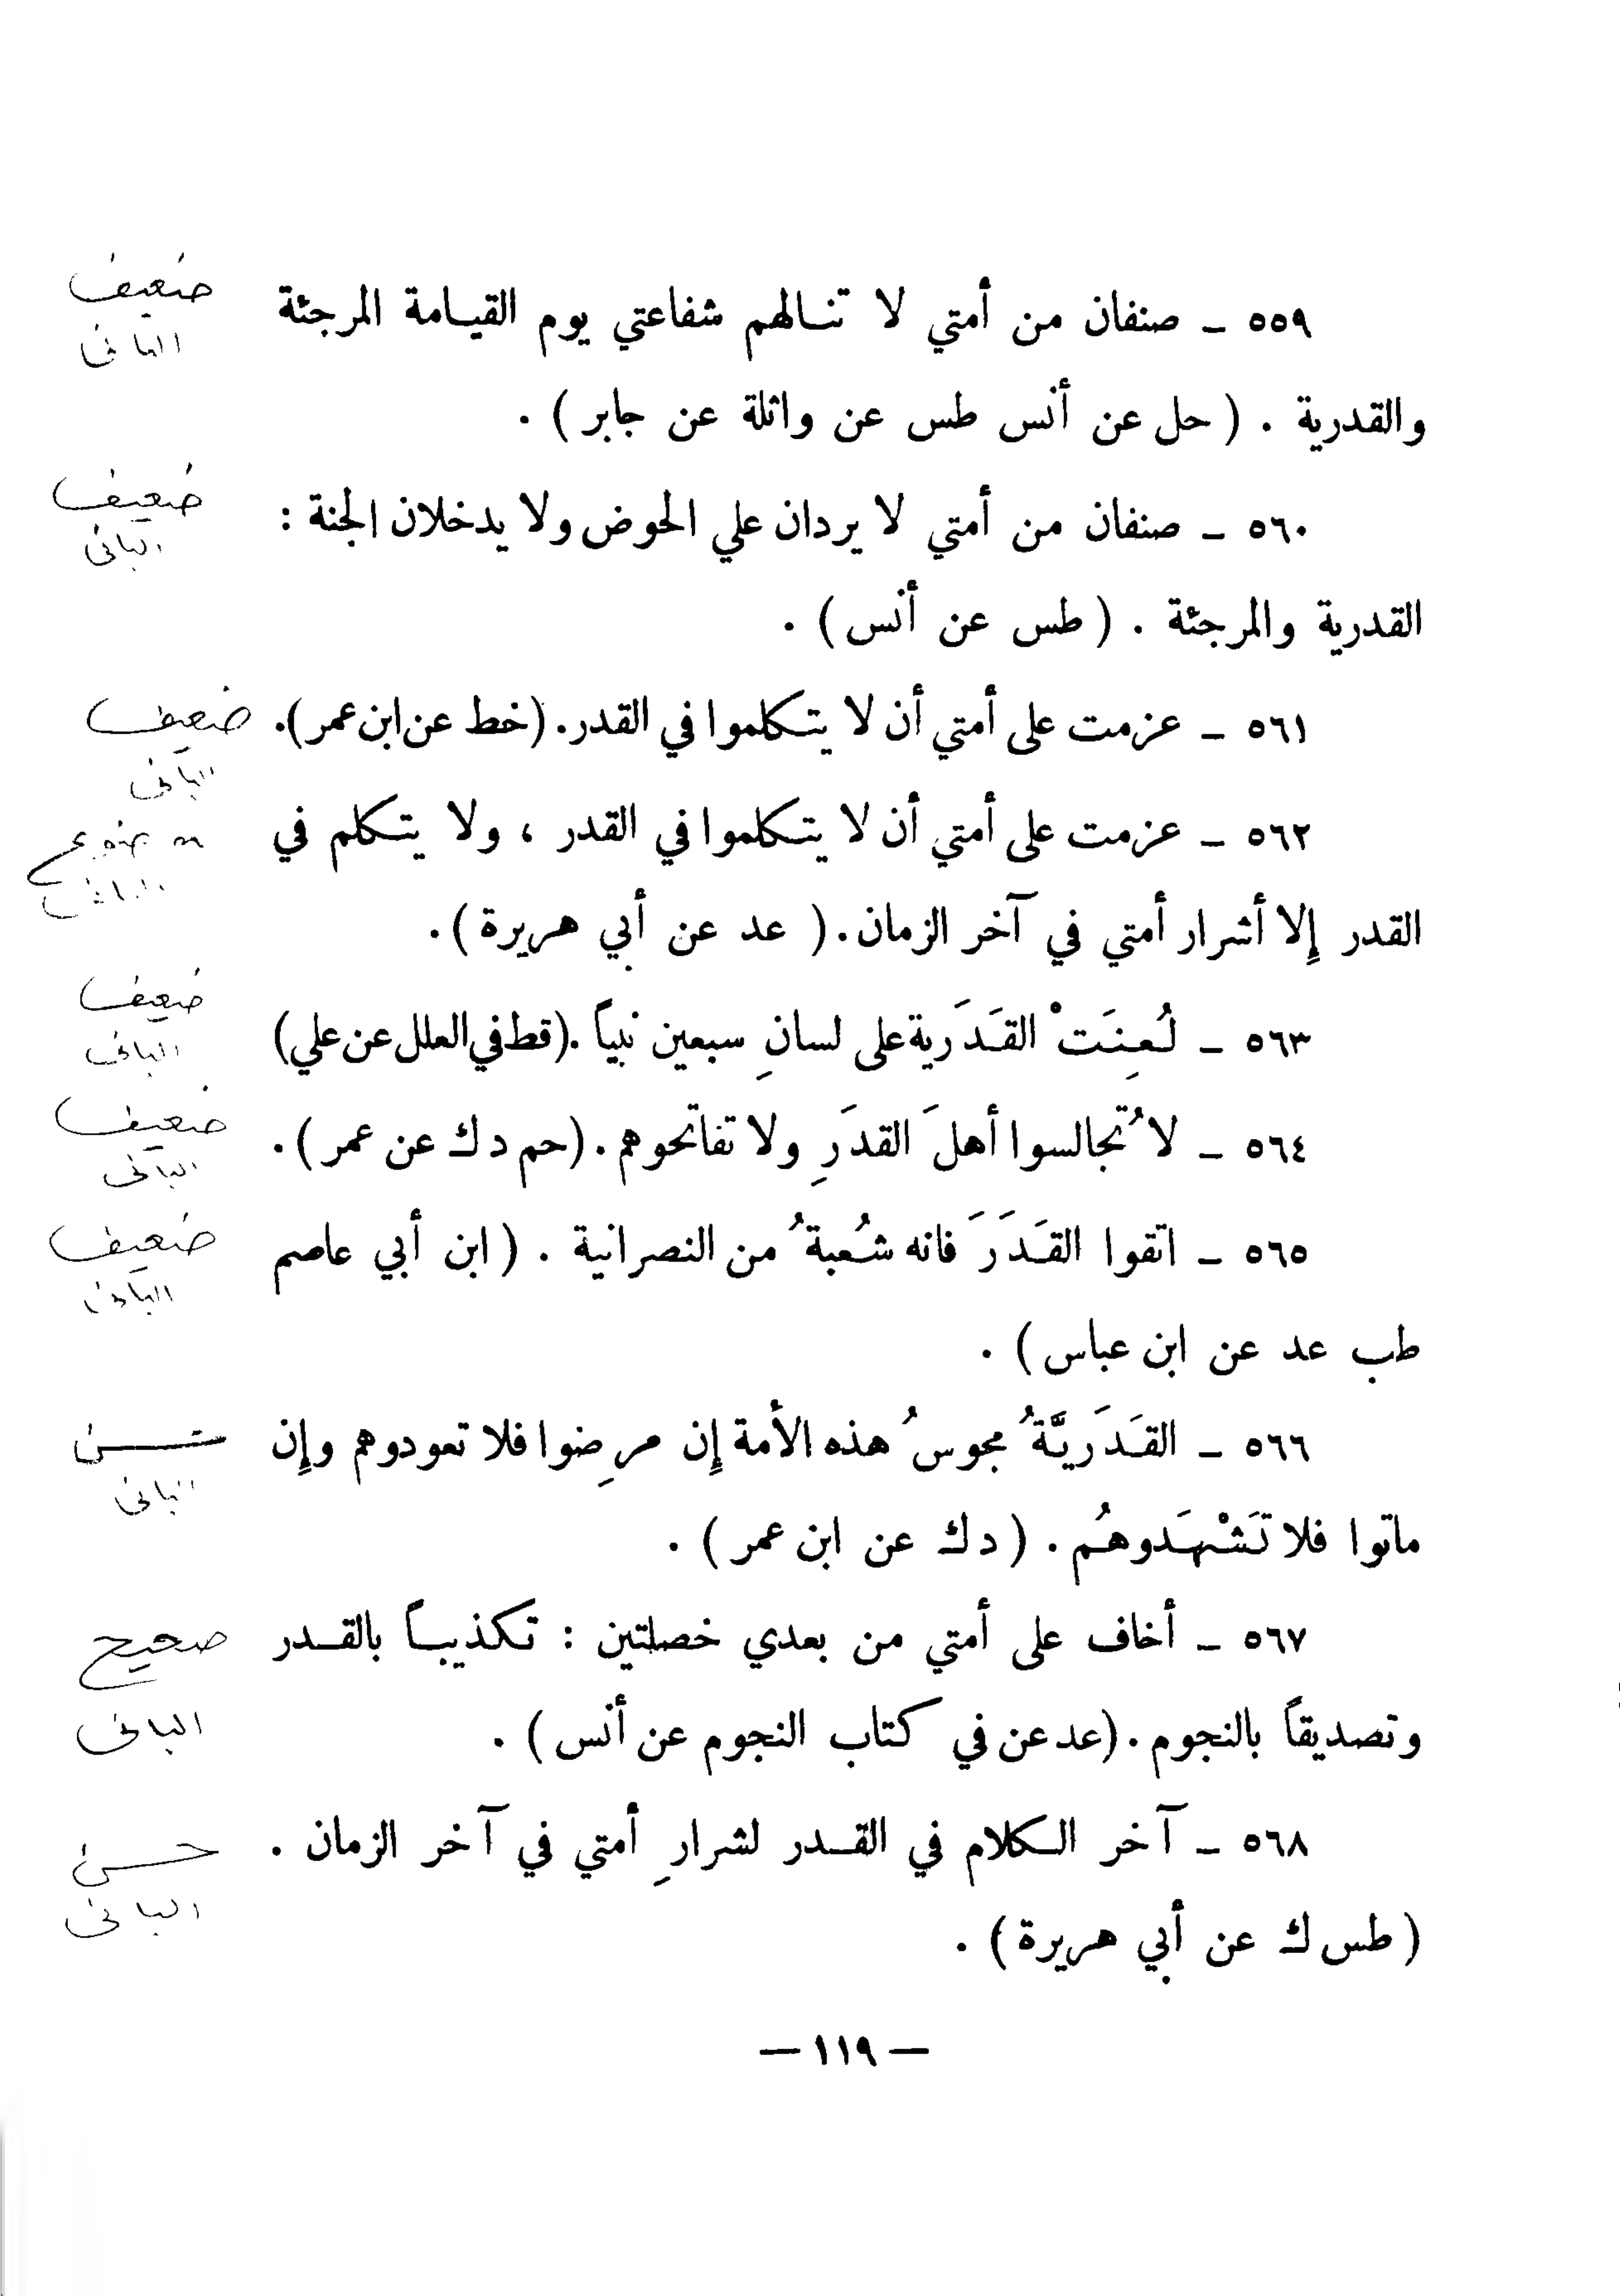 ٥٥٩ ـ صنفان من أمتي لا تنالهم شفاعتي يوم القيامة المرجئة
ضعيف
الباني
والقدرية . ( حل عن أنس طس عن واثلة عن جابر ) .
٥٦٠ ـ صنفان من أمتي لا يردان علي الحوض ولا يدخلان الجنة :
ضعيف
الباني
القدرية والمرجئة . ( طس عن أنس ) .
٥٦١ ـ عزمت على أمتي أن لا يتكلموا في القدر . ( خط عن ابن عمر ) .
ضعيف
الباني
٥٦٢ ـ عزمت على أمتي أن لا يتكلموا في القدر ، ولا يتكلم في
القدر إلا أشرار أمتي في آخر الزمان . ( عد عن أبي هريرة ) .
٥٦٣ ـ لُعِنَتْ القَدَرية على لسانِ سبعين نبياً . ( قط في العلل عن علي )
ضعيف
الباني
٥٦٤ ـ لا تُجالسوا أهلَ القدَرِ ولا تفاتحوهم . ( حم د ك عن عمر ) .
ضعيف
الباني
٥٦٥ ـ اتقوا القَدَرَ فانه شُعبةُ من النصرانية . ( ابن أبي عاصم
ضعيف
الباني
طب عد عن ابن عباس ) .
٥٦٦ ـ القَدَريَّةُ مجوسُ هذه الأمة إن مرِضوا فلا تعودوهم وإن
حسن
الباني
ماتوا فلا تَشْهَدوهُم . ( د ك عن ابن عمر ) .
٥٦٧ ـ أخاف على أمتي من بعدي خصلتين : تكذيباً بالقدر
صحيح
وتصديقاً بالنجوم . ( عد عن في كتاب النجوم عن أنس ) .
الباني
٥٦٨ ـ آخر الكلام في القدر لشرارِ أمتي في آخر الزمان .
حسن
الباني
( طس ك عن أبي هريرة ) .
— ١١٩ —